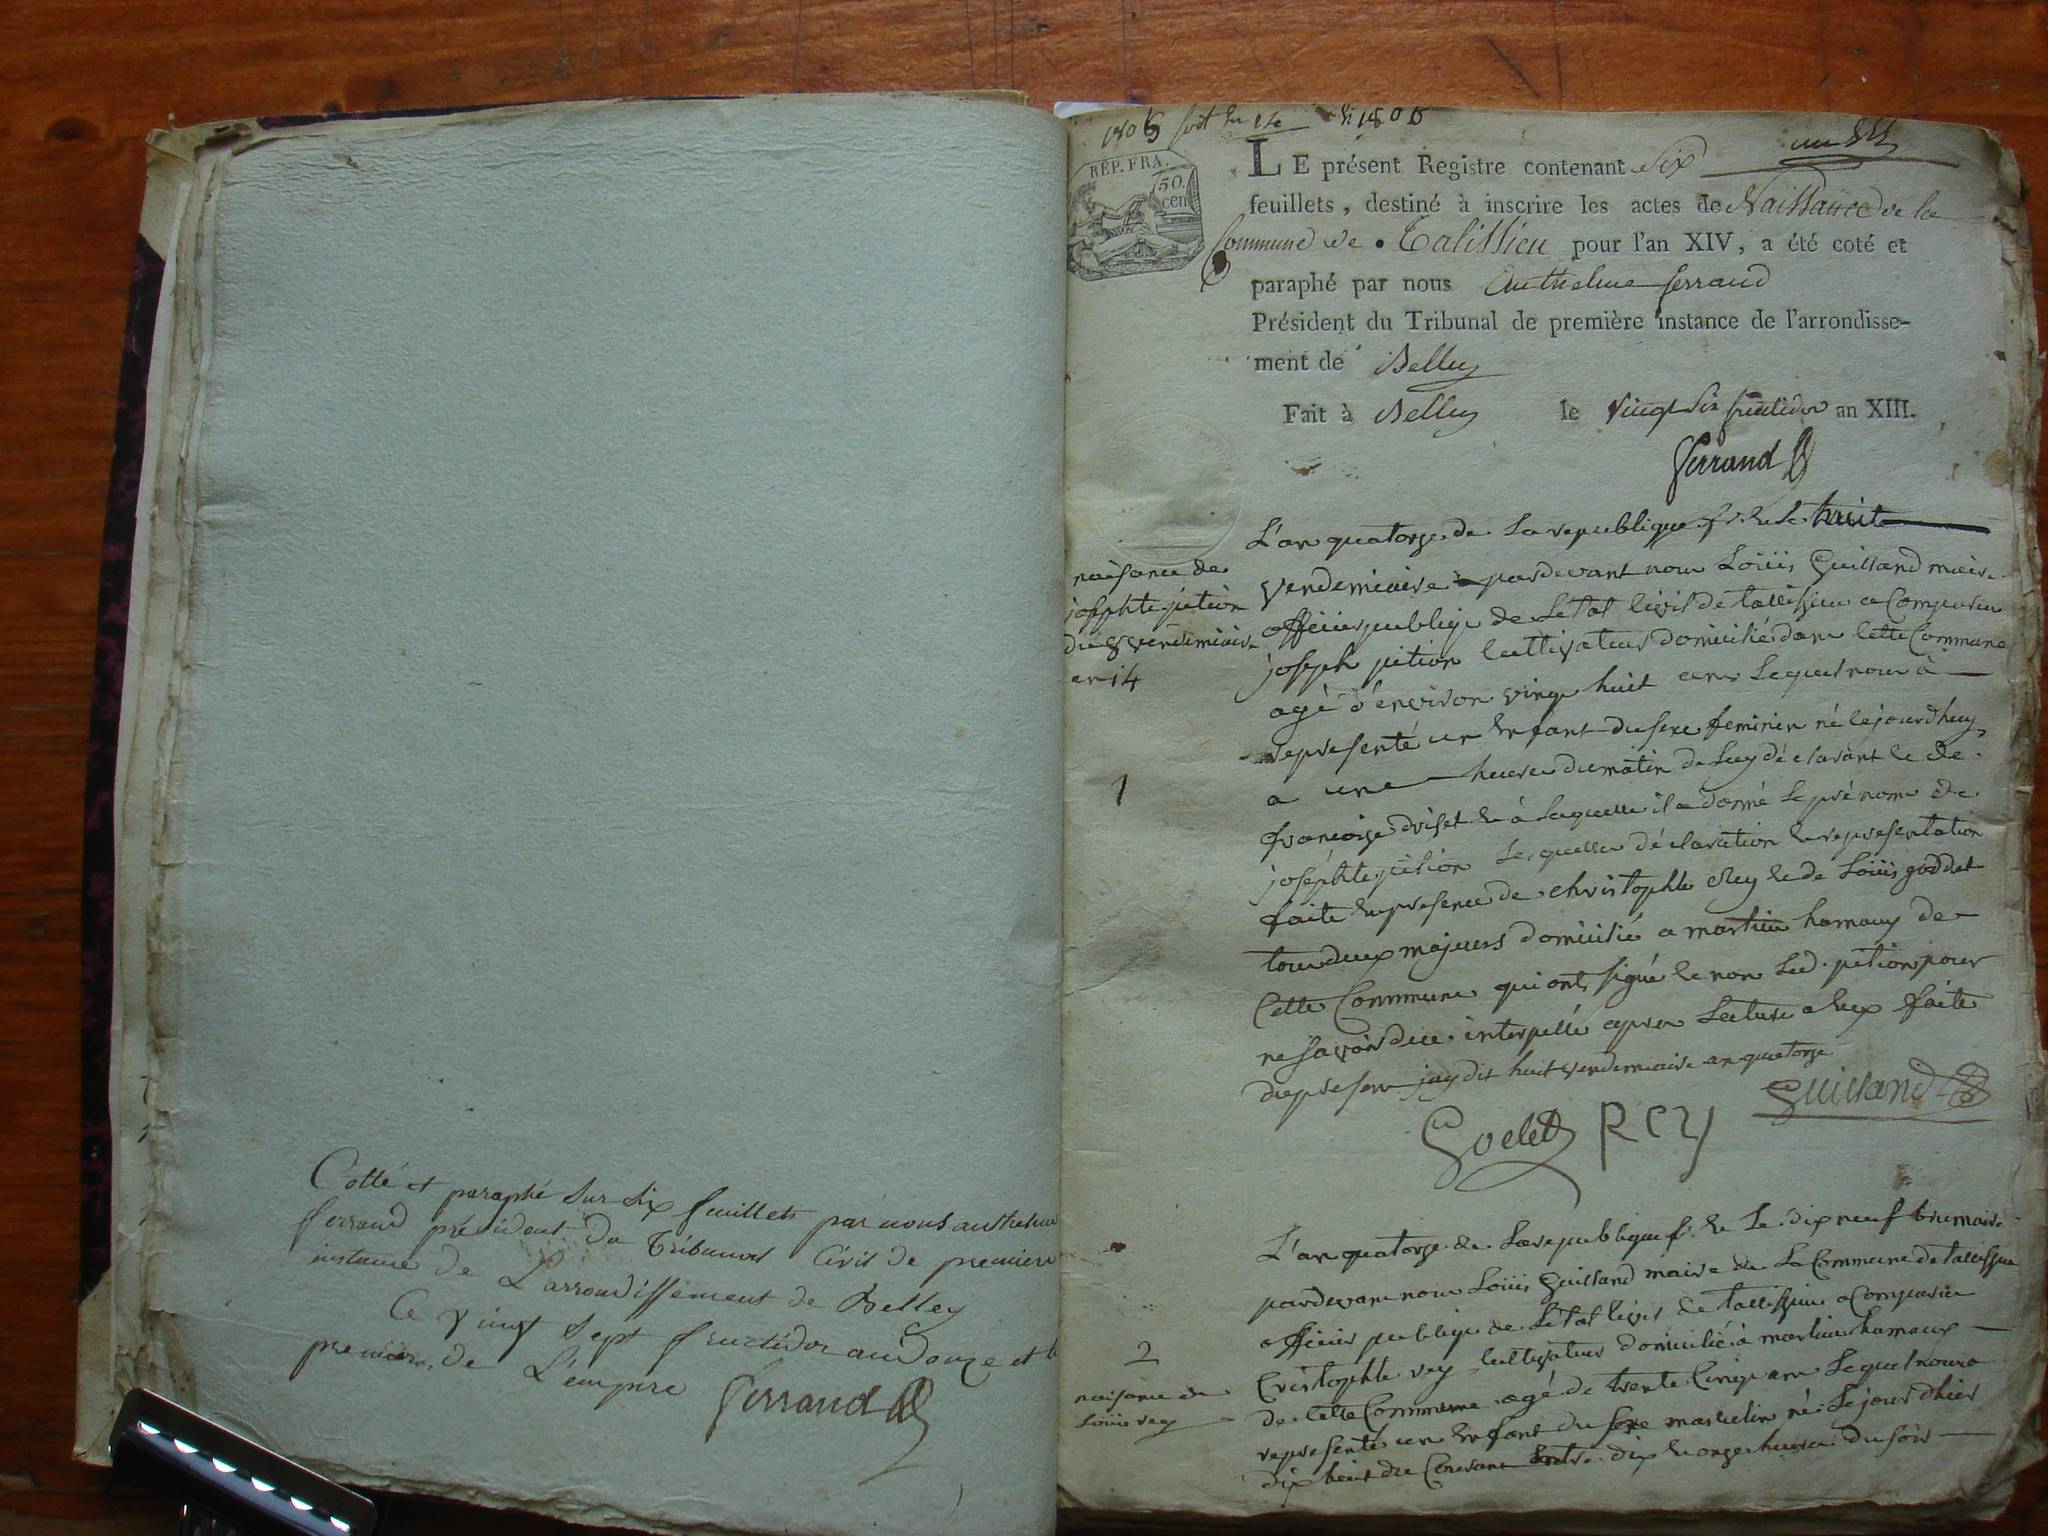 Cotté et paraphé sur six feuillets par nous anthelme
ferrand président du Tribunal Civil de premiere
instance de L'arrondissement de Belley
Ce vingt sept fructidor an douze et
premier de L'empire
ferrand
1805
LE présent Registre contenant six
RÉP. FRA.
50.
cen
feuillets, destiné à inscrire les actes de Naissance de la
Commune de Talissieu pour l'an XIV, a été coté et
paraphé par nous Anthelme ferrand
Président du Tribunal de première instance de l'arrondisse-
ment de Belley
Fait à Belley le vingt six fructidor an XIII.
ferrand
naisance de
josephte pition
du 8 vendemiaire
an 14
1
L'an quatorze de La republique f. et le huit
vendemiaire pardevant nous Loüis Guilland maire
officier publiqe de L'état Civil de tallissieu a Comparu
joseph pition Cultivateur domicilié dans Cette Commune
agé d'environ vingt huit ans Lequel nous à
representé un enfant du sexe feminin né cejourdhuy
a une heure du matin de Luy déclarant et de
françoise driset et à Laquelle il a donné Le prénom de
joséphte pition Lesquelles déclaration et representation
faite en presence de christophle Rey et de Loüis goddet
tous deux majeurs domicilié a martin hamaux de
Cette Commune qui ont signé et non Led. pition pour
ne savoir de ce interpellé apres Lecture a eux faite
du present jay dit huit vendemiaire an quatorze
Guilland
Godet Rey
2
naisance de
Loüis rey
L'an quatorze de La republique f. et Le dix neuf brumaire
pardevant nous Loüis Guilland maire de La Commune de tallissieu
officier publiqe de L'état Civil de tallissieu a Comparu
Cristophle rey Cultivateur domicilié à martin hamaux
de Cette Commune agé de trente Cinq ans Lequel nous a
representé un enfant du sexe masculin né Le jour dhier
dix huit du Courant entre dix et onze heures du soir